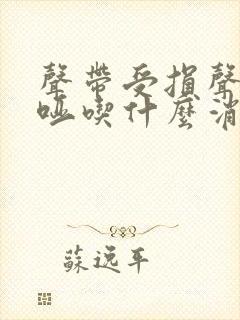 聲帶受損聲
啞喫什麼消
蘇逸平